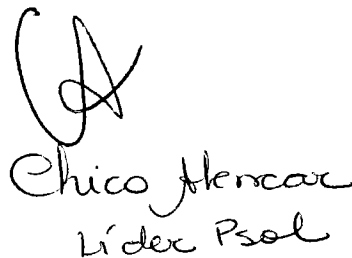 Chico Alencar
Líder Psol